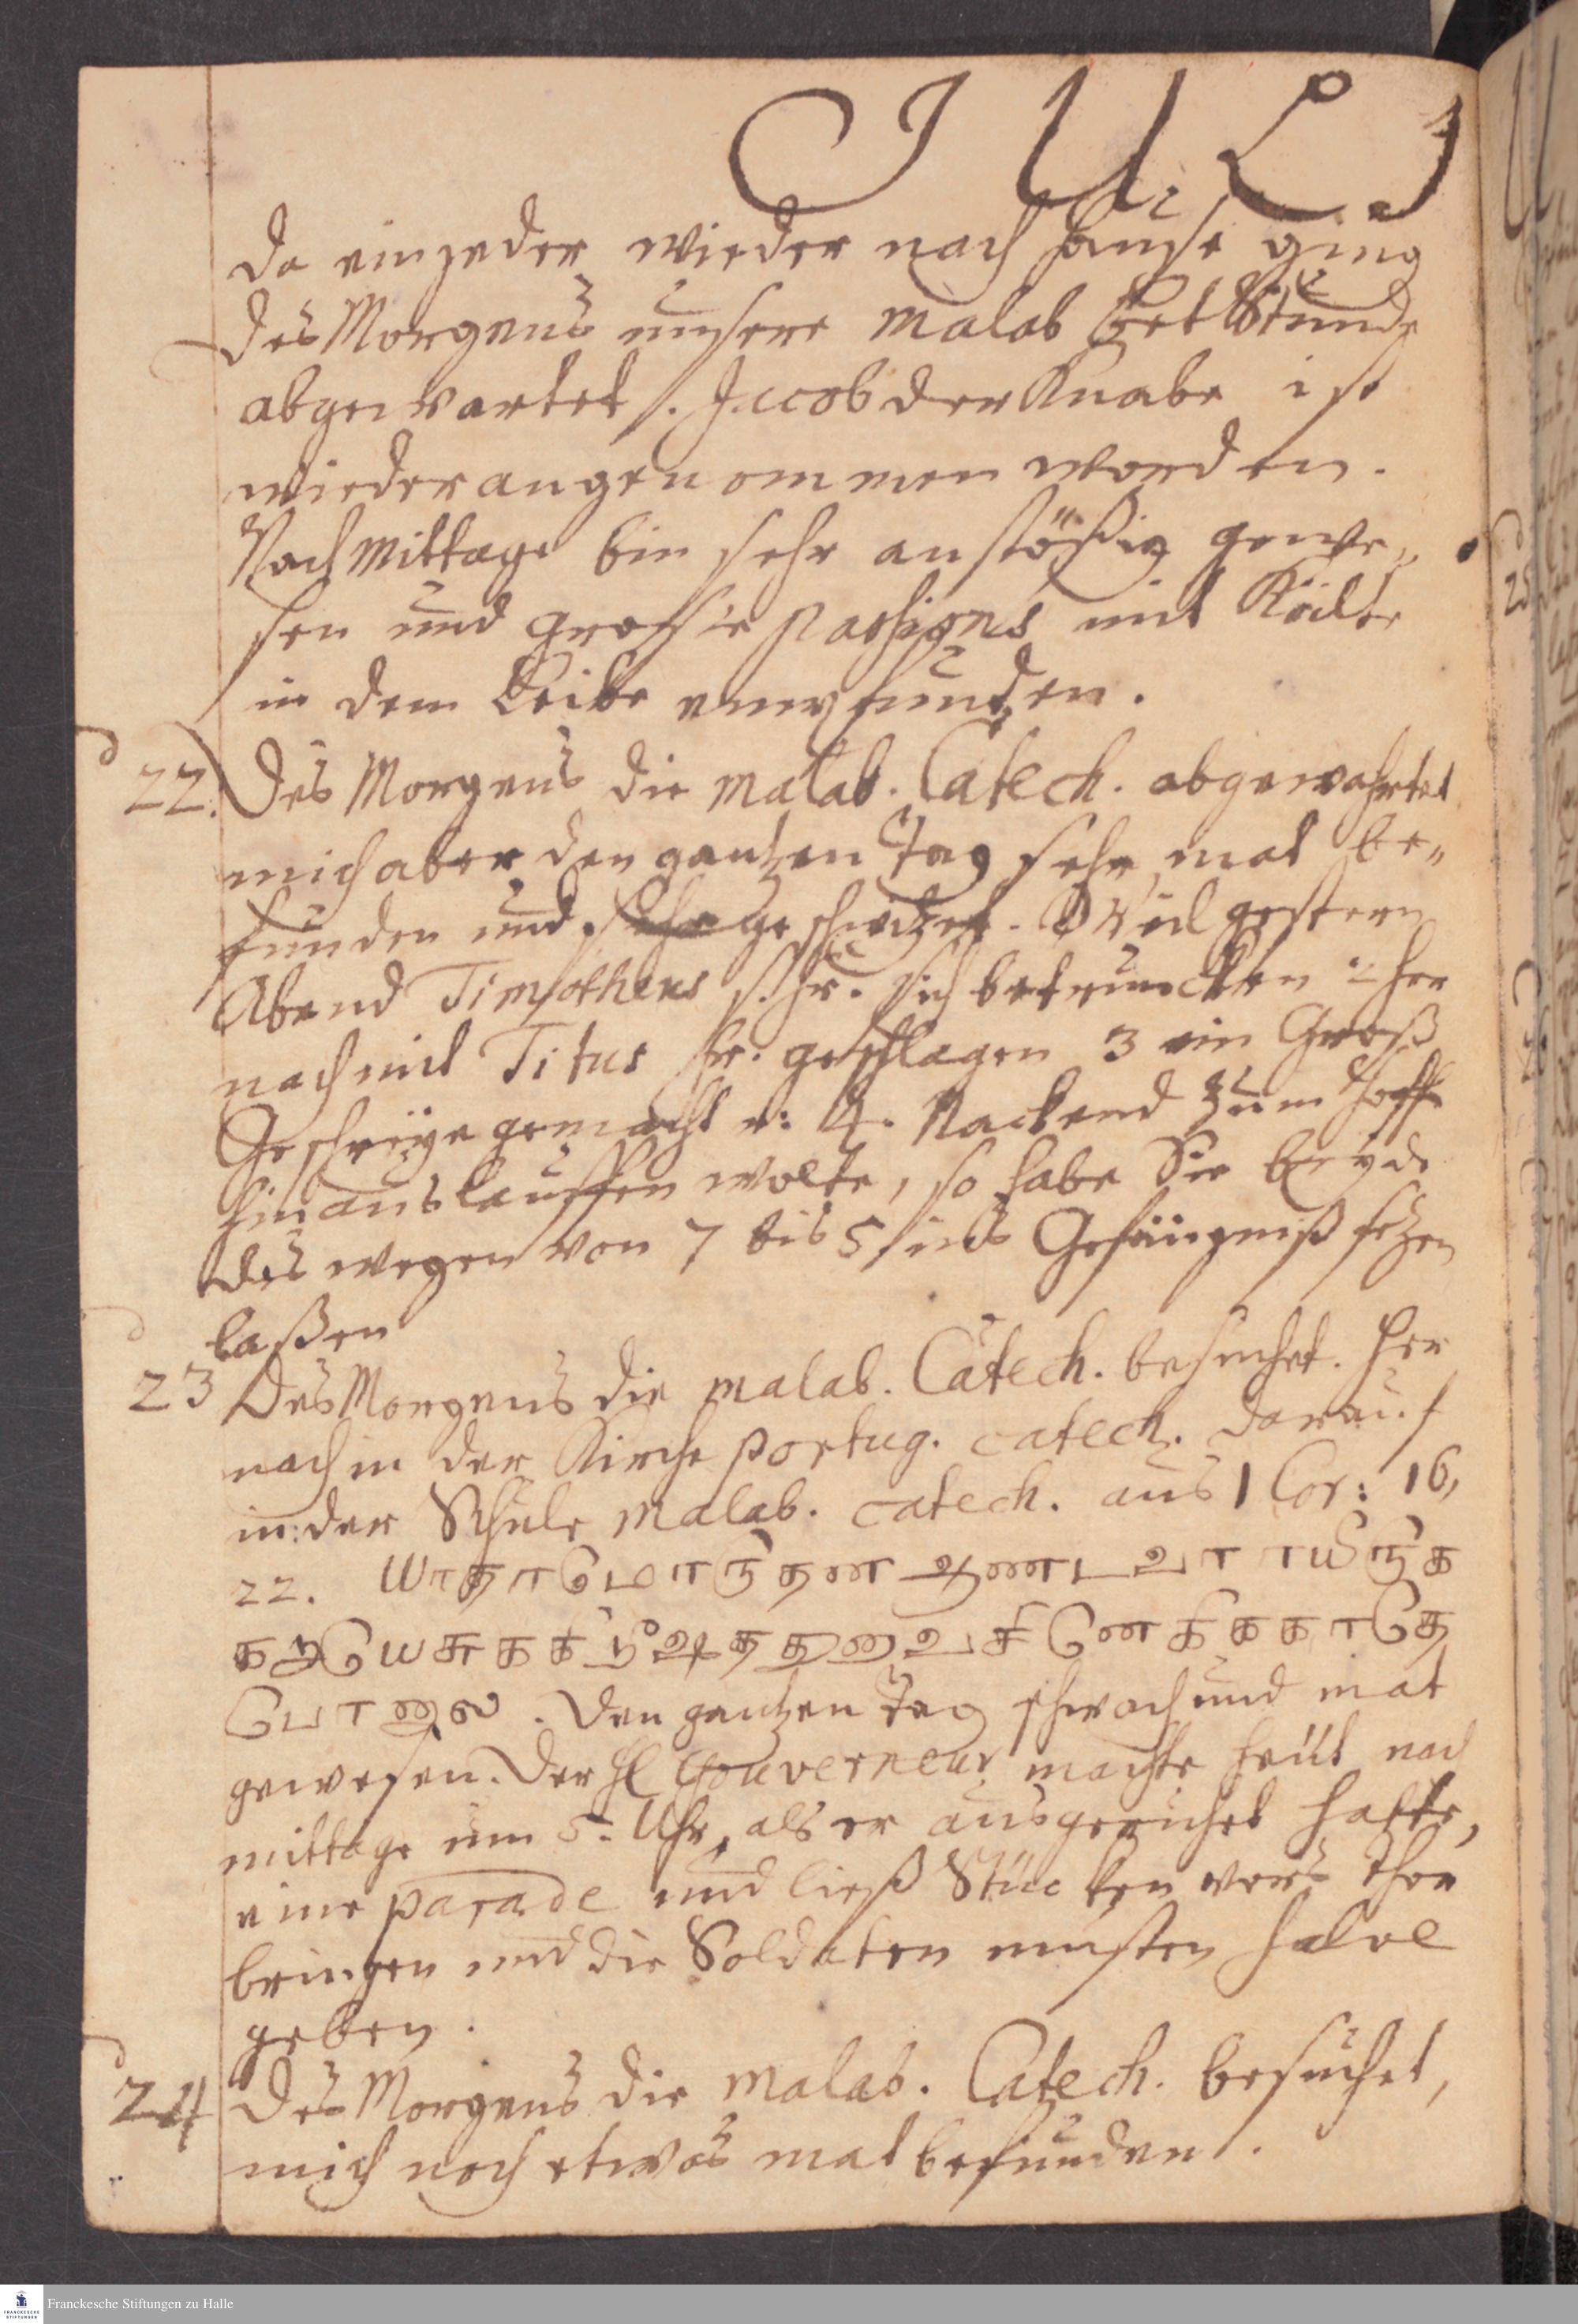 JULI
da ein jeder wieder nach Hause ging
des Morgens unsere malab Bet Stunde
abgewartet. Jacob der Knabe ist
wieder angenommen worden.
Nachmittage bin sehr anstößig gewe„
sen und grosse passions mit Kälte
in dem Leibe empfunden.
22. Des Morgens die malab. Catech. abgewahrtet
mich aber den gantzen Tag sehr mat be„
funden und geschwitzet. Weil gestern
Abend Timotheus sich betruncken her
nach mit Titus geschlagen 3 ein Groß
Geschreye gemacht u: 4. Nackend zum Hoffe
hinauslauffen wolte, so habe Sie beyde
deswegen von 7 bis 5 ins Gefängniß sezen
laßen
23 Des Morgens die malab. Catech. besuchet. Her
nach in der Kirche portug. catech. darauf
in der Schule malab. catech. aus 1 Cor: 16,
22. யாதாமொருதன ஆணடவராயிருக
கற யேசுக கிறீஷத துவ சினெகிககாதெ
பொனால. Den gantzen Tag schwach und mat
gewesen. Der H Gouverneur machte heut nach
mittage um 5. Uhr, als er ausgeruhet hatte,
eine parade und ließ Stücken vors Thor
bringen und die Soldaten musten salve
geben.
24 Des Morgens die malab. Catech. besuchet,
mich noch etwas mat befunden.
Franckesche Stiftungen zu Halle